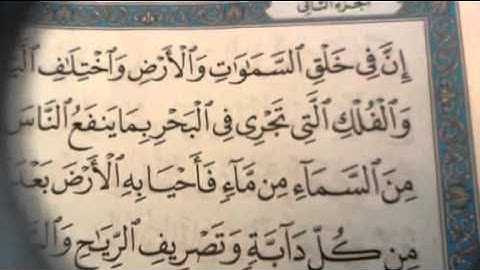 الجزء الثاني
إِنَّ فِي خَلْقِ ٱلسَّمَٰوَٰتِ وَٱلْأَرْضِ وَٱخْتِلَٰفِ
وَٱلْفُلْكِ ٱلَّتِي تَجْرِي فِي ٱلْبَحْرِ بِمَا يَنفَعُ ٱلنَّاسَ
مِنَ ٱلسَّمَآءِ مِن مَّآءٍ فَأَحْيَا بِهِ ٱلْأَرْضَ بَعْدَ
مِن كُلِّ دَآبَّةٍ وَتَصْرِيفِ ٱلرِّيَٰحِ